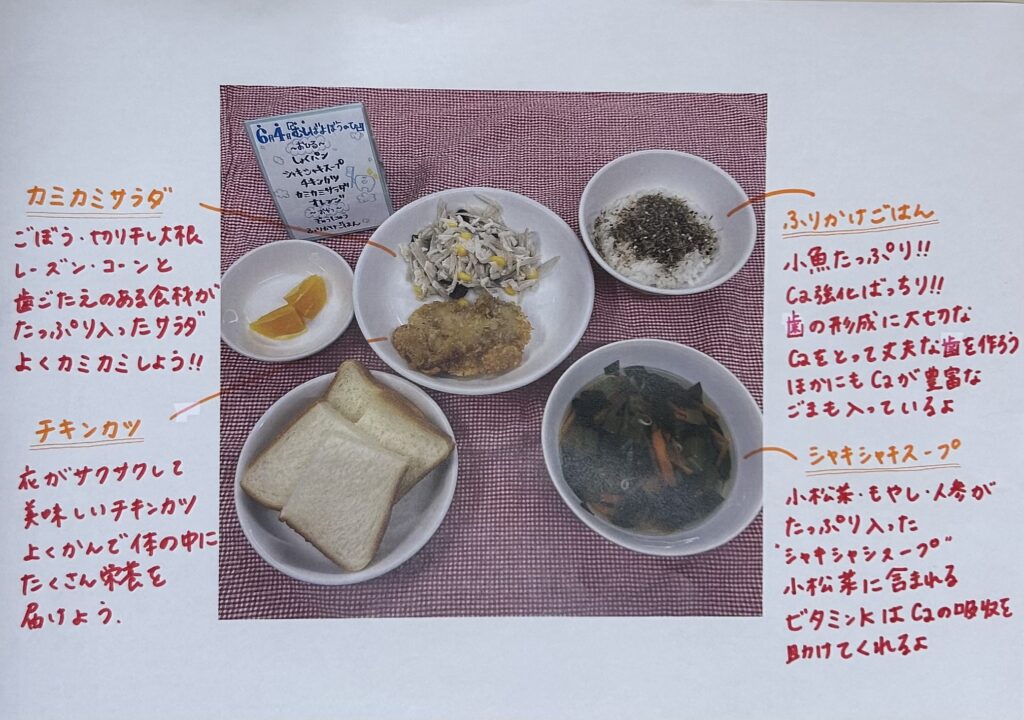 6月4日むしばよぼうのひ
～おひる～
しょくパン
シャキシャキスープ
チキンカツ
カミカミサラダ
オレンジ
～おやつ～
ぎゅうにゅう
ふりかけごはん
カミカミサラダ
ごぼう・切り干し大根
レーズン・コーンと
歯ごたえのある食材が
たっぷり入ったサラダ
よくカミカミしよう!!
チキンカツ
衣がサクサクして
美味しいチキンカツ
よくかんで体の中に
たくさん栄養を
届けよう.
ふりかけごはん
小魚たっぷり!!
Ca強化ばっちり!!
歯の形成に大切な
Caをとって丈夫な歯を作ろう
ほかにもCaが豊富な
ごまも入っているよ
シャキシャキスープ
小松菜・もやし・人参が
たっぷり入った
"シャキシャシスープ"
小松菜に含まれる
ビタミンKはCaの吸収を
助けてくれるよ